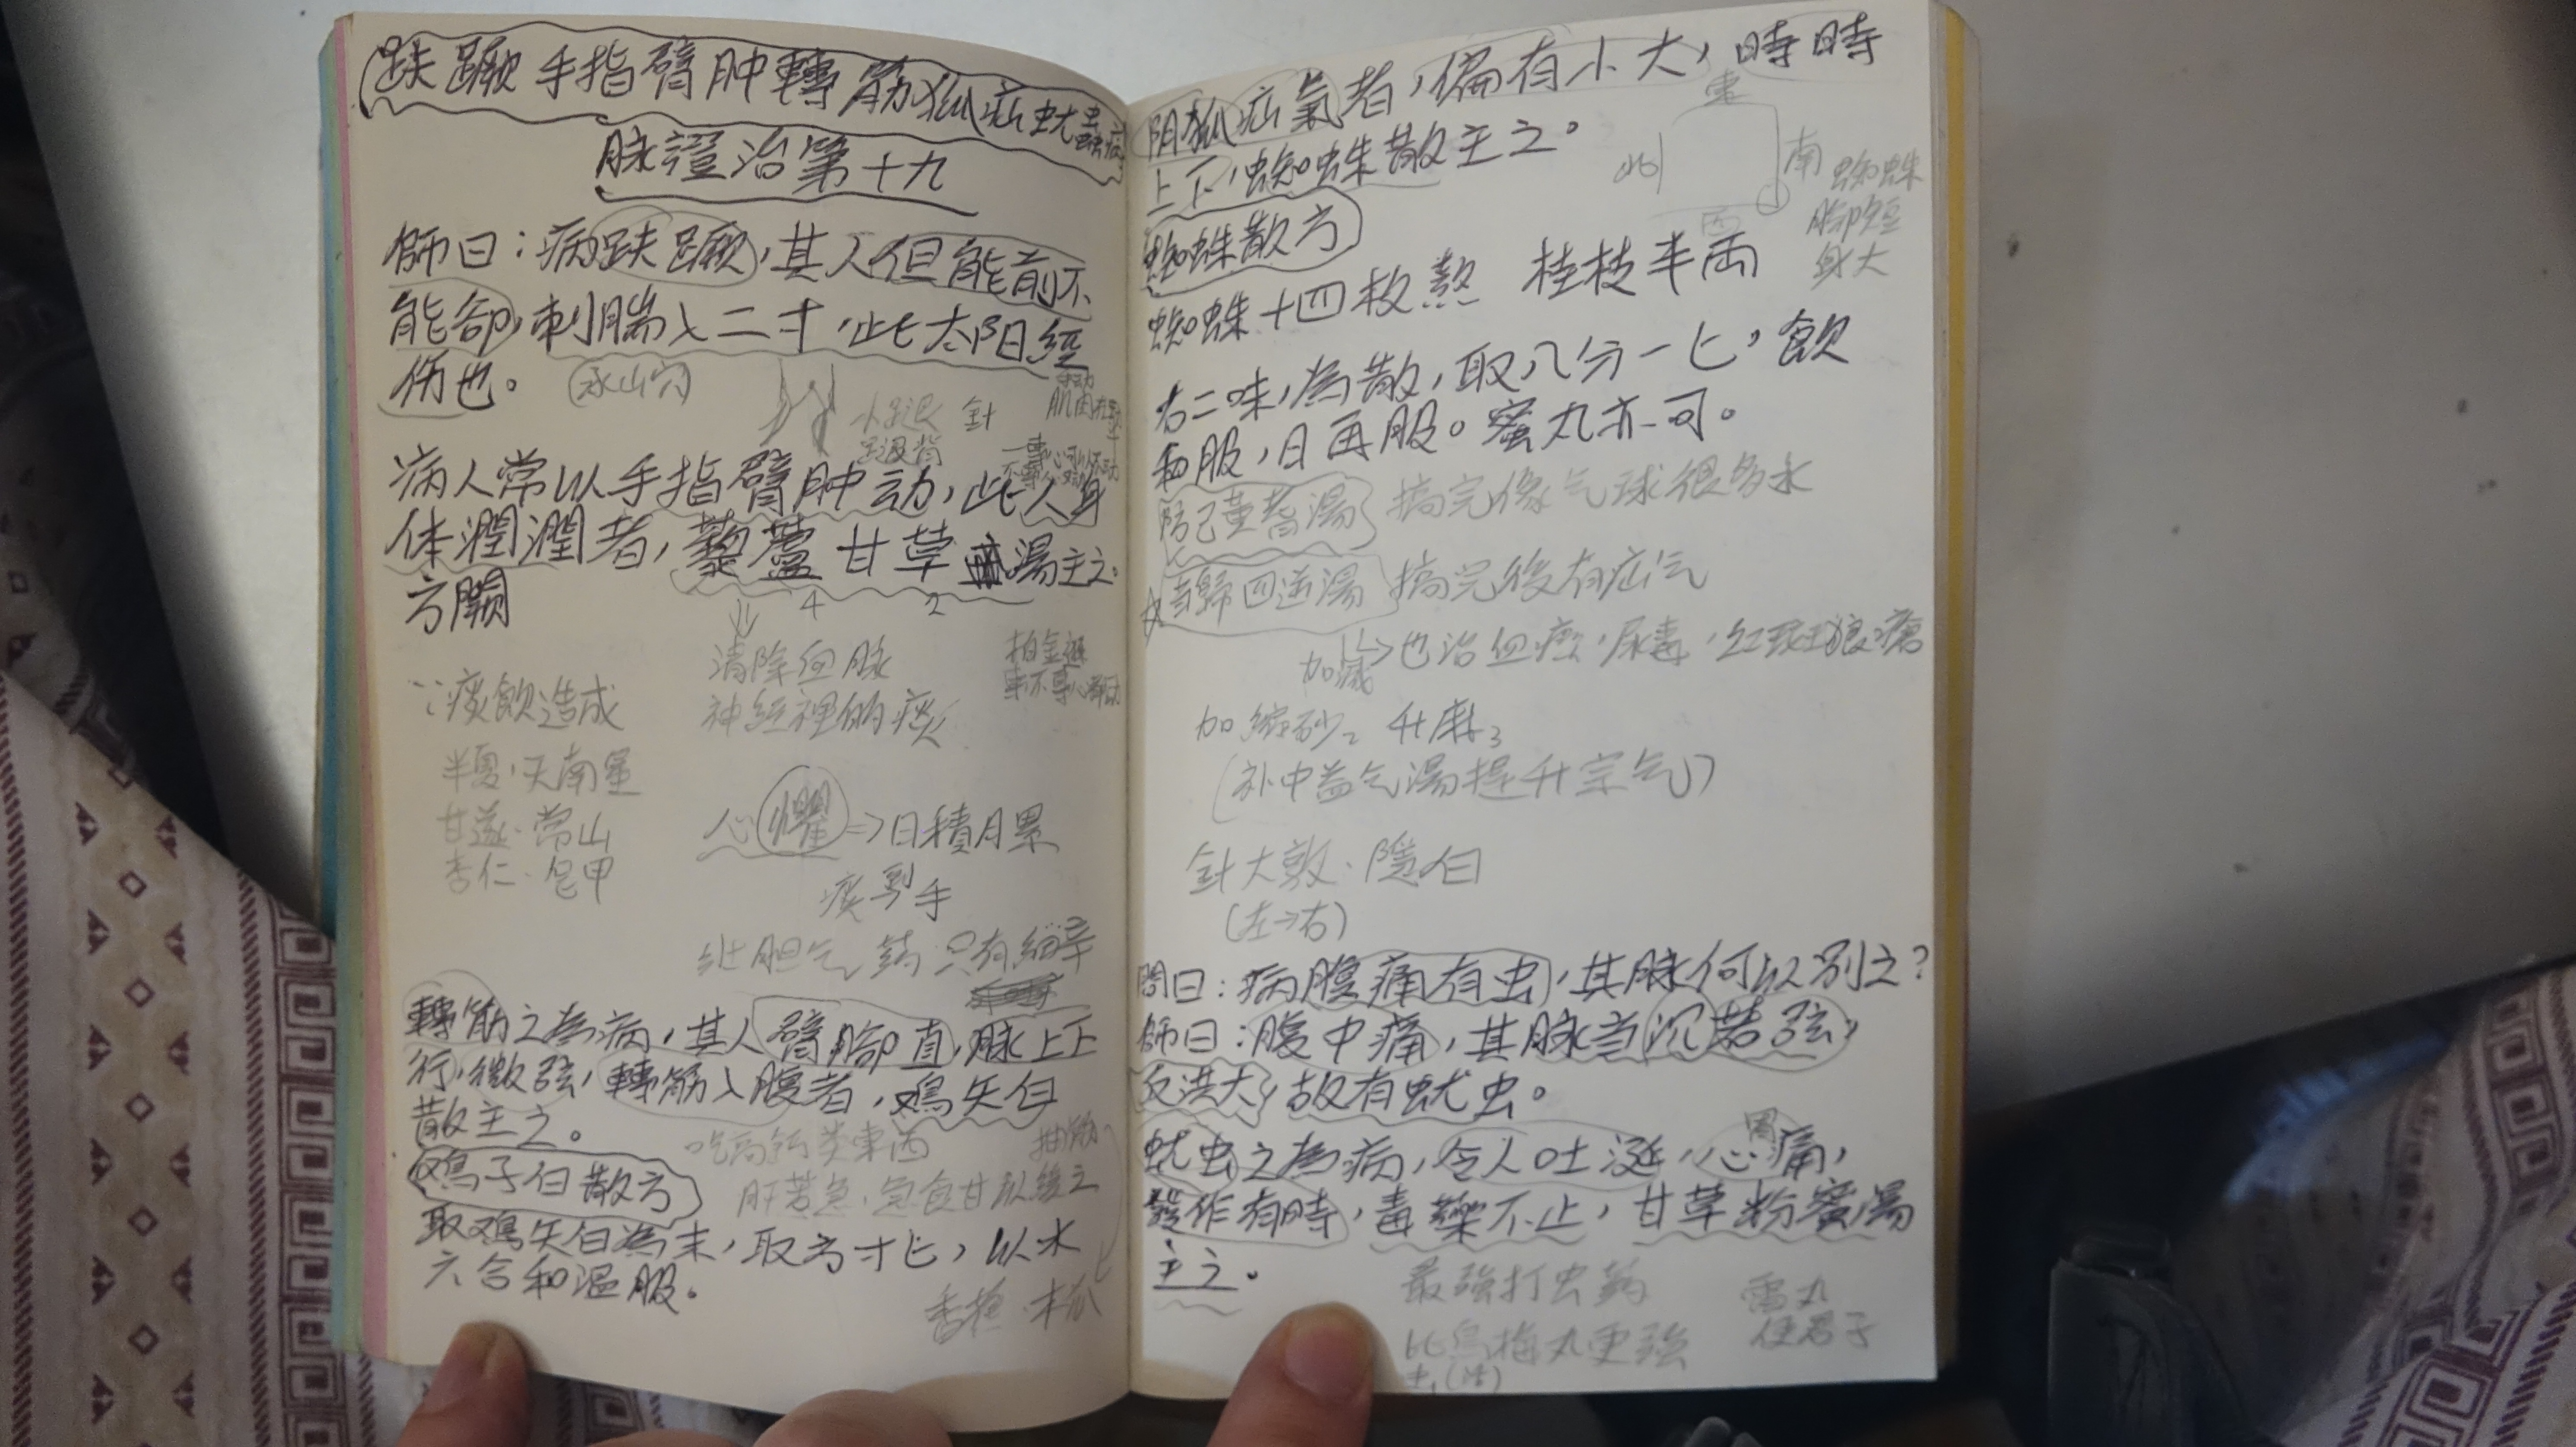 趺蹶手指臂肿轉筋狐疝蚘蟲病
脉證治第十九
師曰：病趺蹶，其人但能前不
能卻，刺腨入二寸，此太阳经
伤也。
承山穴
針
病人常以手指臂肿动，此人身
体瀾瀾者，藜蘆甘草湯主之。
方闕
4 2
清除血脉
神经裡的痰
∵痰飲造成
半夏，天南星
甘遂．常山
杏仁．皂甲
心懼=>日積月累
痰到手
壮胆气薬只有細辛
轉筋之為病，其人臂腳直，脉上下
行，微弦，轉筋入腹者，鸡矢白
散主之。
吃高鈣类東西
抽筋
肝苦急．急食甘以緩之
鸡子白散方
取鸡矢白為末，取方寸匕，以水
六合和温服。
木瓜
阴狐疝氣者，偏有小大，時時
上下，蜘蛛散主之。
東
南
西
北
蜘蛛
腳短
身大
蜘蛛散方
蜘蛛十四枚熬 桂枝半両
右二味，為散，取八分一匕，飲
和服，日再服。蜜丸亦可。
防己黄耆湯 搞完像气球很多水
当歸四逆湯 搞完後有疝气
加減 ->也治血癌．尿毒，红斑狼瘡
加縮砂2 升麻3
（补中益气湯提升宗气）
針大敦．隱白
（左->右）
問曰：病腹痛有虫，其脉何以别之？
師曰：腹中痛，其脉当沉若弦，
反洪大，故有蚘虫。
蚘虫之為病，令人吐涎，心痛，
胃
發作有時，毒藥不止，甘草粉蜜湯
主之。
最強打虫薬
比烏梅丸更強
雷丸
使君子